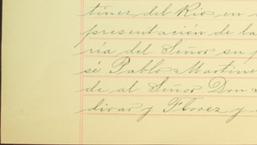 tinez del Rio en
presentación de la
ría del Señor su p
sé Pablo Martine
de al Señor Don
divar y Florez y